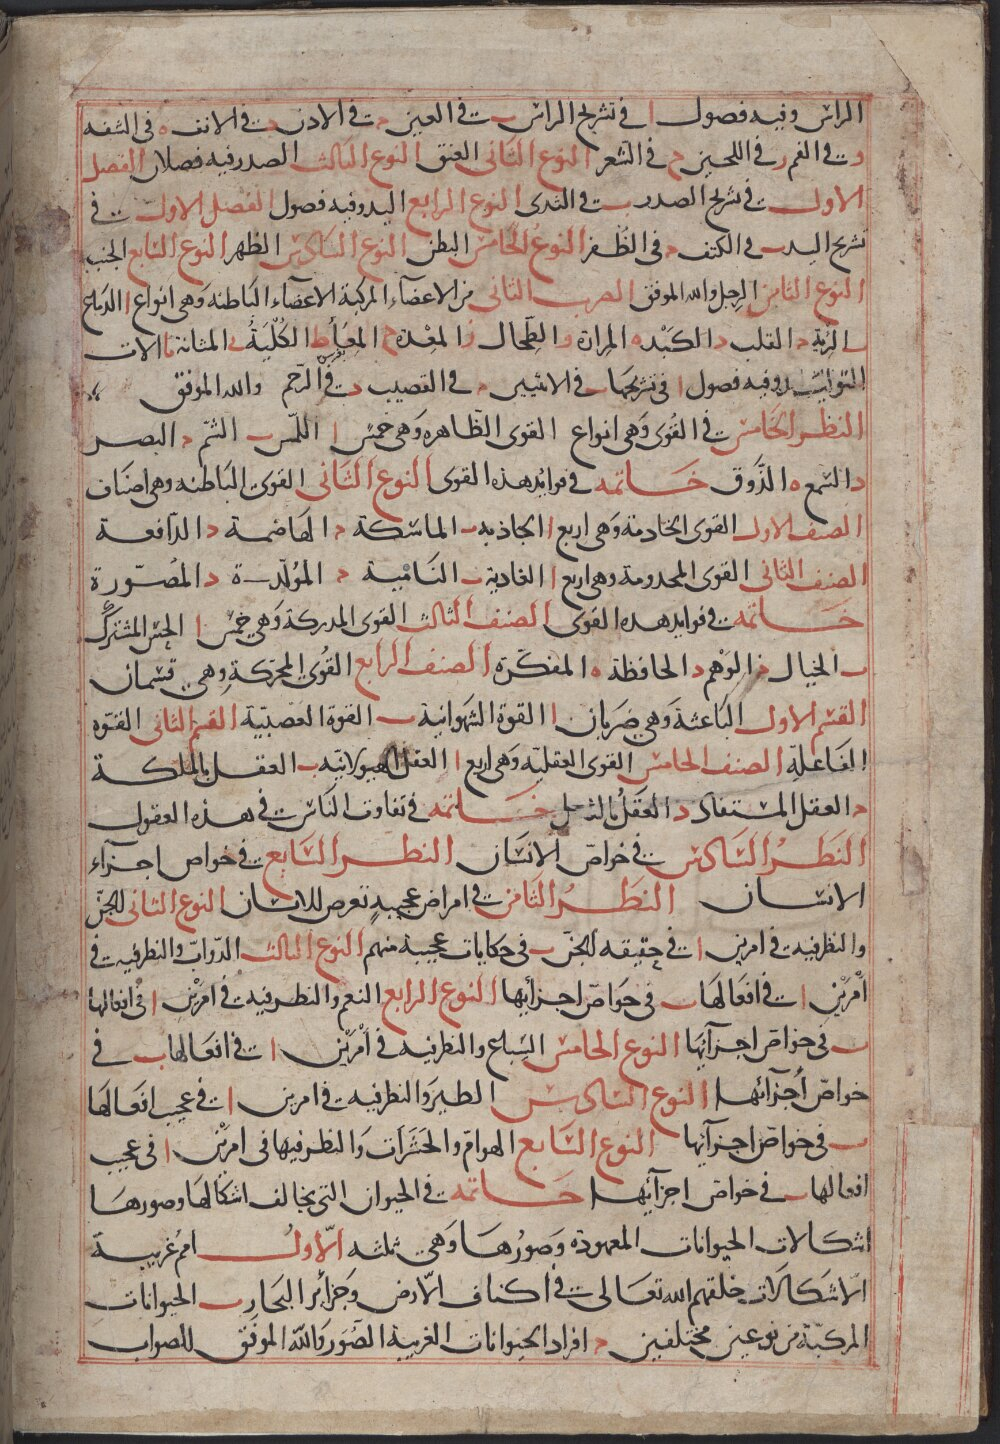 الراس وفيه فصول ا في تشريح الراس ب في العين ج في الاذن د في الانف ه في الشفه
و في الفم ز في اللحيين ح في الشعر النوع الثانى العنق النوع الثالث الصدر وفيه فصلان الفصل
الاول في تشريح الصدر ب في الثدى النوع الرابع اليد وفيه فصول الفصل الاول في
تشريح اليد ب في الكتف د في الظفر النوع الخامس البطن النوع السادس الظهر النوع السابع الجنب
النوع الثامن الرجل والله الموفق الضرب الثانى من الاعضآء المركبة الاعضآء الباطنه وهى انواع ا الدماغ
ب الرّية ج القلب د الكَبْد ه المرارة و الطِّحال ز المعْدة ح المِعَا ط الكُلْيَةُ ى المثانة يا الات
التوالد وفيه فصول ا في تشريحها ب في الانثيين ج في القضيب د في الرّحم والله الموفق
النظر الخامس في القُوى وَهى انواع القوى الظّاهره وَهى خمس ا اللّمس ب الشمّ ج البصر
د السّمع ه الذَّوق خَاتمه في فوايد هذه القوى النوع الثّانى القوى الباطنه وهى اصناف
الصنف الاول القوى الخادمة وَهى اربع ا الجاذبه ب الماسْكة ج الهَاضمة د الدّافعة
الصنف الثّانى القوى المخدومة وهى اربع ا الغاديه ب النَّامْية ج المؤلّدة د المُصَّورة
خَاتمه في فوايد هده القوى الصنف الثالث القوى المدركة وَهي خمس ا الحِسّ المشترك
ب الخيال ج الوَهْم د الحافظة ه المفكّره الصنف الرابع القُوى المحرّكة وهي قسمان
القسْم الاول البَاعثة وَهي ضَربان ا القوة الشهوانية ب القوة الغضبيّة القسم الثانى القوّه
الفَاعلة الصنف الخامس القوى العقليّه وَهى اربع ا العقل الهيولانيّه ب العقل بالملكة
ج العقل المستفاد د العَقلُ بالفعل خَاتمه في تفاوت النّاس في هذه العقول
النَظرُ السّادس في خواصّ الانسَان النظر السّابع في خواص اجزآء
الانسان النّظرُ الثّامن في امراض عجيبةٍ تعرض للانسان النوع الثانى للجنّ
والنظر فيه في امرين ا في حقيقه الجنّ ب في حكايات عجيبة منهم النوع الثالث الدّوابّ والنظر فيه في
أمْريْن ا في افعالهَا ب في خواصّ اجزآئها النوع الرابع النعم والنظر فيه في امرَيْن ا في افعالها
ب في خواصّ اجزآئها النوع الخامس السّباع والنظر فيه في أمْرَيْن ا في افعالها ب في
خواصّ أجزآئها النوع السّادس الطير وَالنظر فيه في امرين ا في عجيب افعَالها
ب في خواصّ اجزآئها النوع السّابع الهوامّ والحَشَرات وَالنظر فيها في امرَيْن ا في عجيب
افعالها ب في خواصّ اجزآئها خَاتمه في الحيوان التى يخالف اشكالها وصورهَا
اشكالات الحيوانات المعهودة وَصُورُهَا وَهى ثلثه الاّولُ امم غريبة
الاشكالات خلقهم الله تعَالى في أكناف الارض وَجَزآئر البحَار ب الحيوانات
المركبّة من نوعين مختلفين ج افراد الحيوانات الغريبة الصّوَر وَالله الموفق للصواب